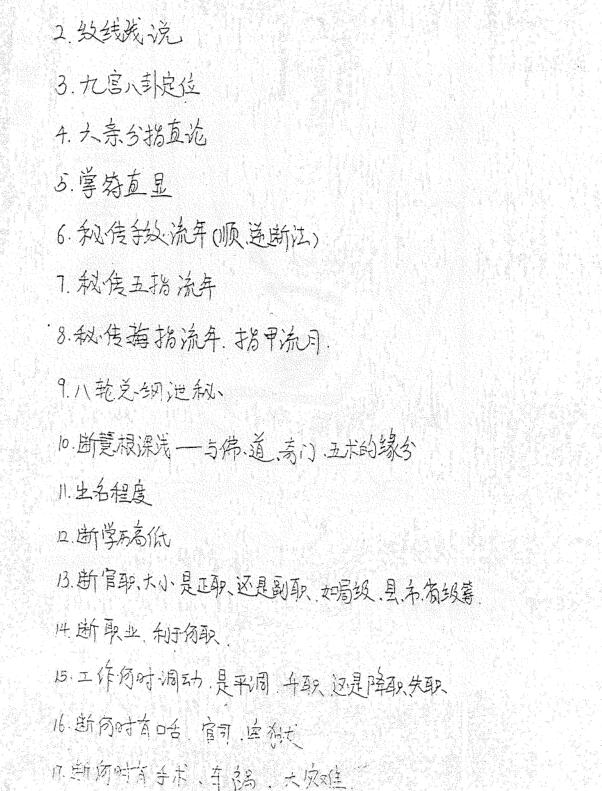 2.纹线浅说
3.九宫八卦定位
4.六亲分指直论
5.掌符直显
6.秘传手纹流年(顺、逆断法)
7.秘传五指流年
8.秘传每指流年.指甲流月.
9.八轮总纲泄秘
10.断慧根深浅——与佛、道、奇门、五术的缘分
11.出名程度
12.断学历高低
13.断官职、大小是正职、还是副职、如局级、县、市、省级等.
14.断职业、利于何职.
15.工作何时调动、是平调、升职、还是降职、失职
16.断何时有口舌、官司、牢狱
17.断何时有手术、车祸、大灾难.